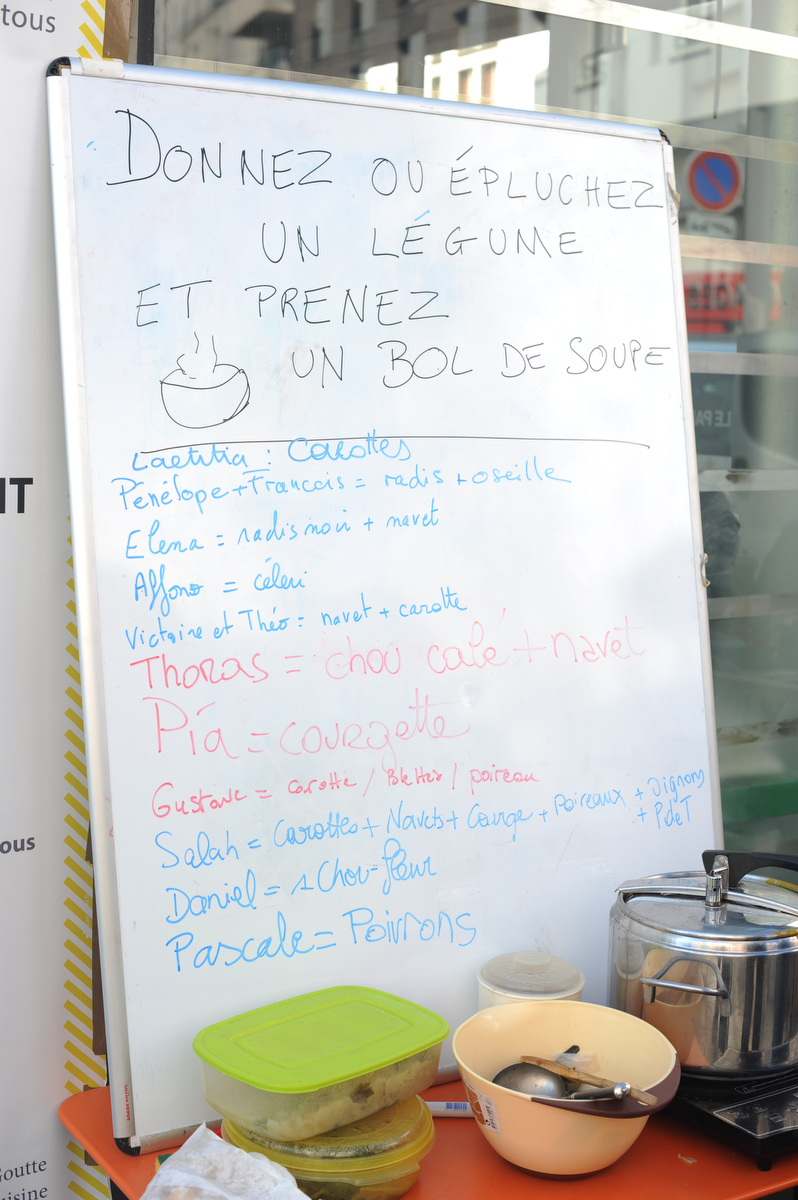 tous
DONNEZ OU ÉPLUCHEZ
UN LÉGUME
ET PRENEZ
UN BOL DE SOUPE
Laetitia : Carottes
Pénélope + Francois = radis + oseille
Elena = radis noir + navet
Affons = céleri
Victoire et Théo = navet + carotte
Thoras = chou calé + navet
Pía = courgette
Gustave = carotte / blettes / poireau
Salah = Carottes + Navets + Courge + Poireaux + Oignons
+ P.deT
Daniel = 1 Chou-fleur
Pascale = Poivrons
IT
ous
Goutte
uisine
LE PA